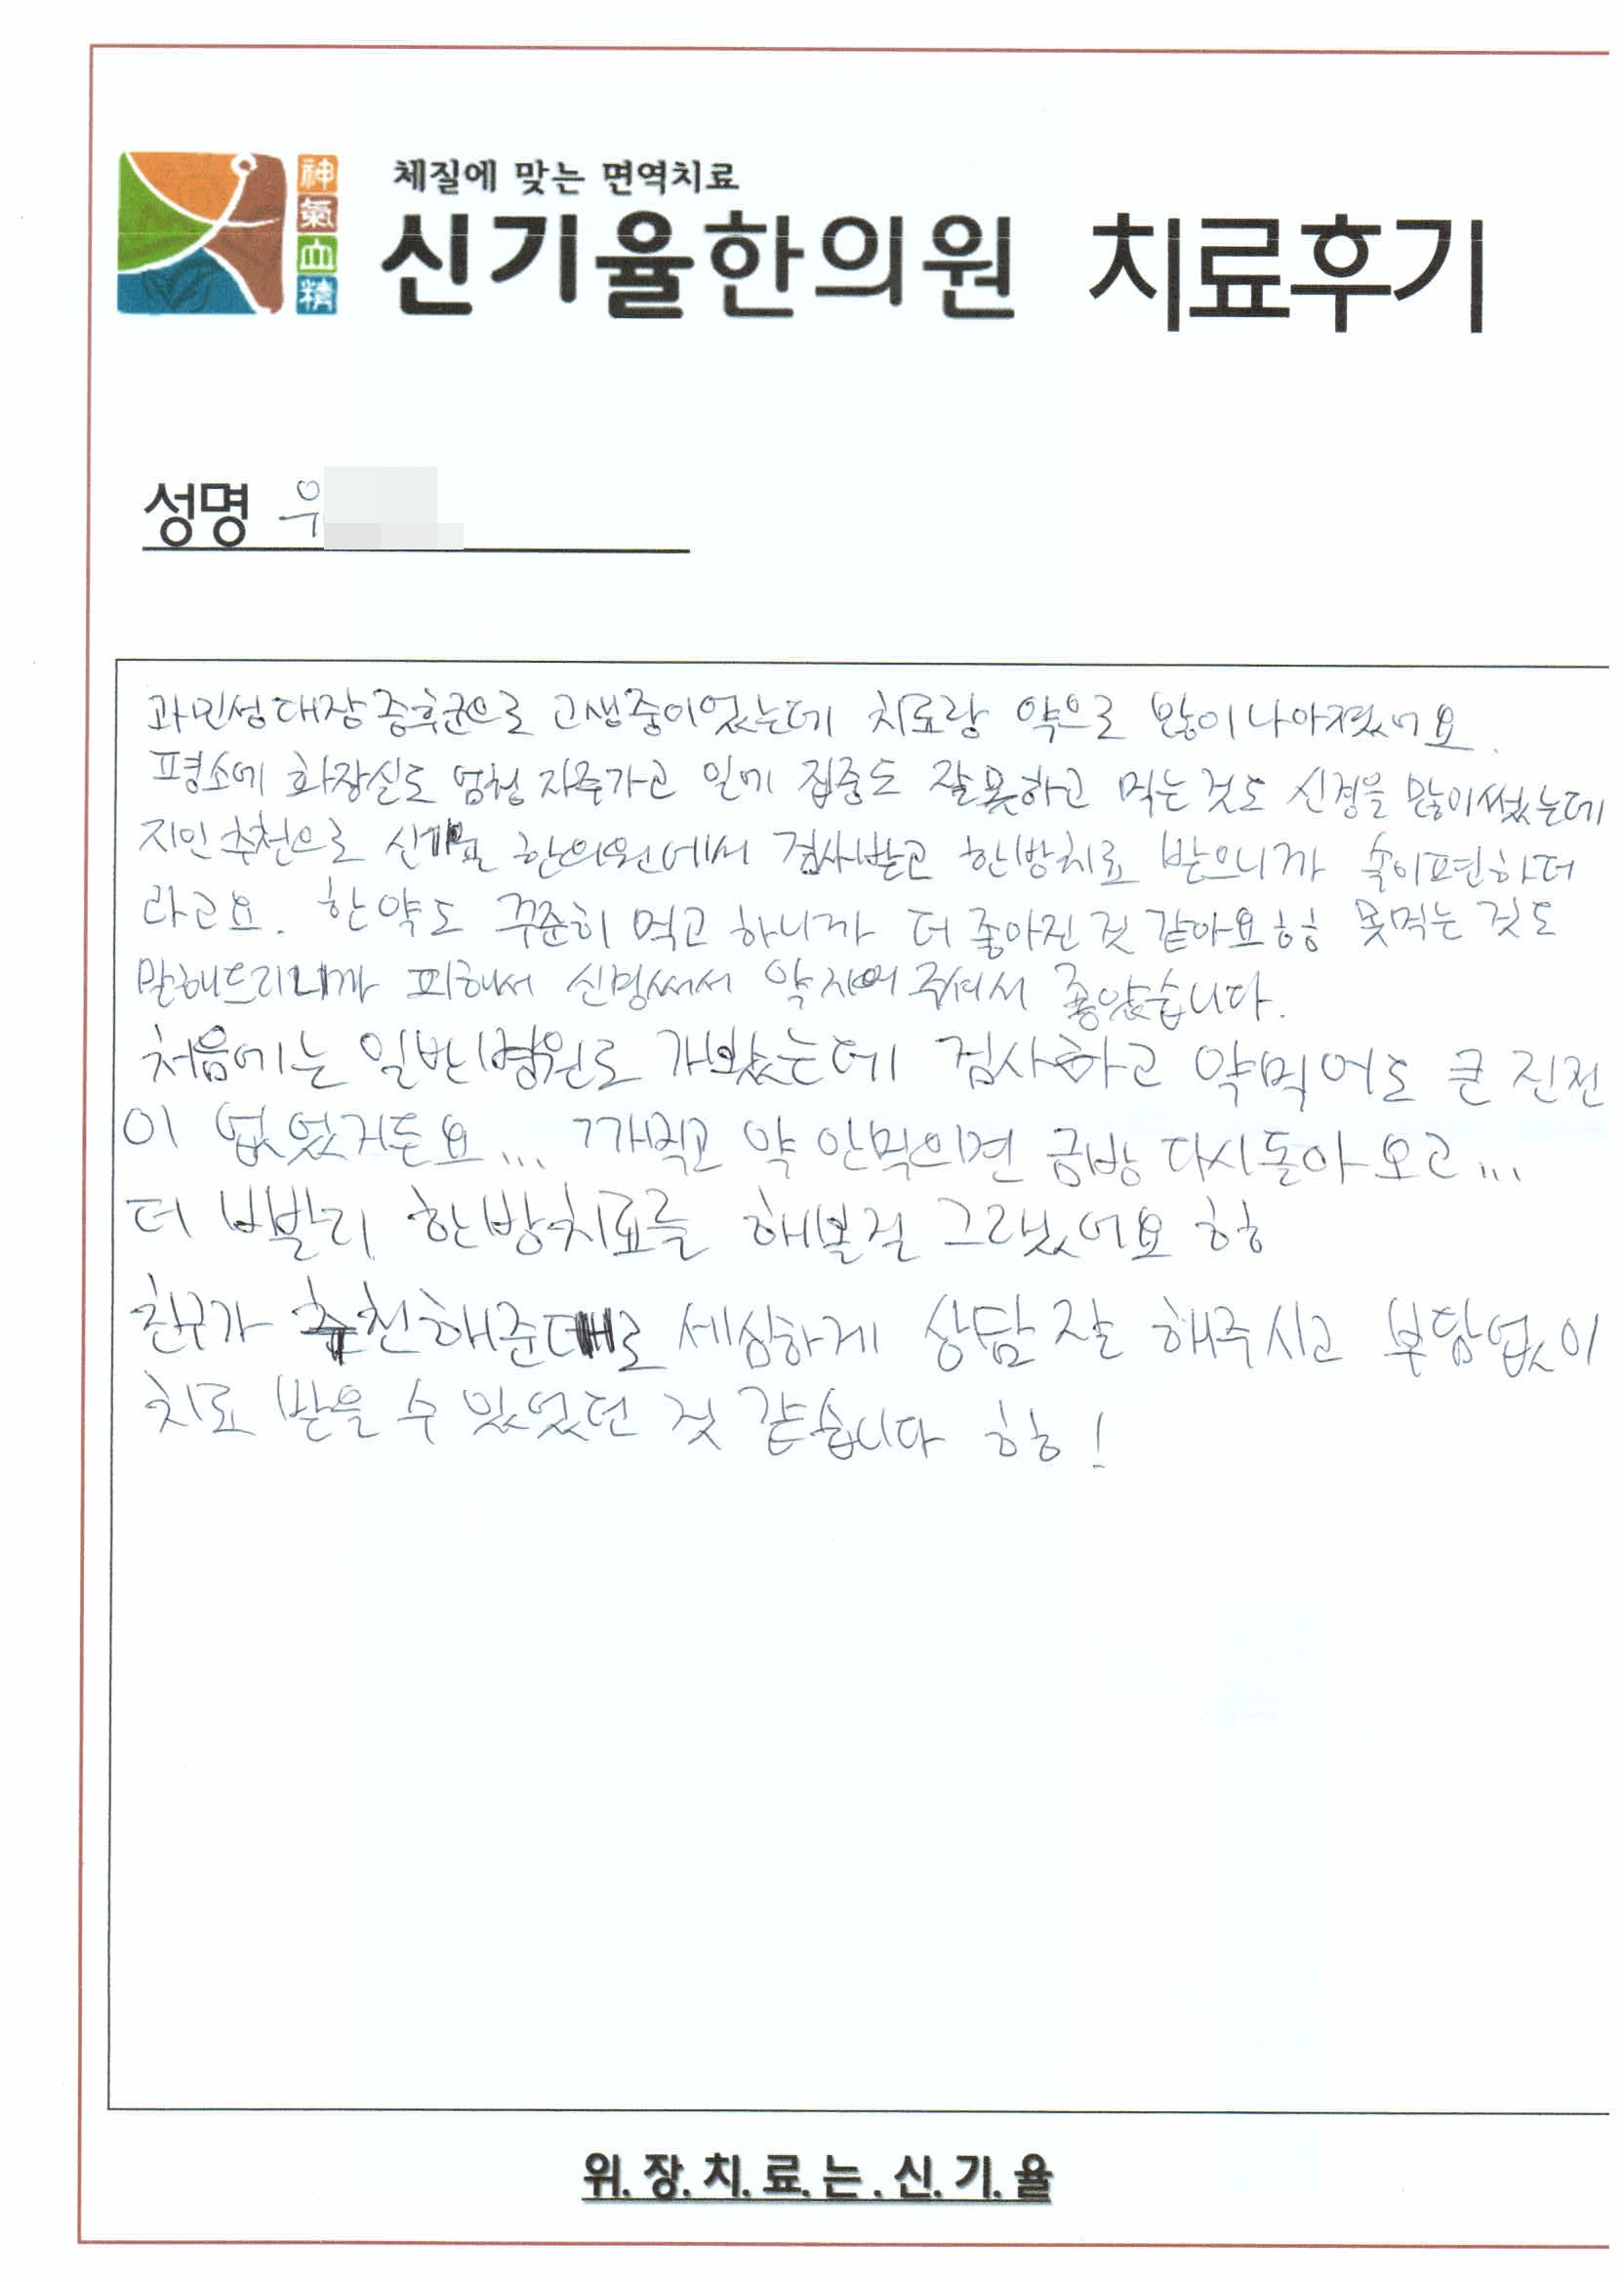 神
氣
血
精
체질에 맞는 면역치료
신기율한의원 치료후기
성명 우
과민성대장증후군으로 고생중이었는데 치료랑 약으로 많이나아졌어요.
평소에 화장실도 엄청 자주가고 일에 집중도 잘못하고 먹는것도 신경을 많이썼는데
지인추천으로 신기율 한의원에서 검사받고 한방치료 받으니까 속이편하더
라고요. 한약도 꾸준히 먹고 하니까 더 좋아진것 같아요ㅎㅎ 못먹는 것도
말해드리니까 피해서 신경써서 약지어주셔서 좋았습니다.
처음에는 일반병원도 가봤는데 검사하고 약먹어도 큰 진전
이 없었거든요... 까먹고 약 안먹으면 금방 다시돌아오고...
더 빨리 한방치료를 해볼걸 그랬어요 ㅎㅎ
친구가 추천해준대로 세심하게 상담 잘 해주시고 부담없이
치료 받을 수 있었던 것 같습니다 ㅎㅎ!
위.장.치.료.는.신.기.율